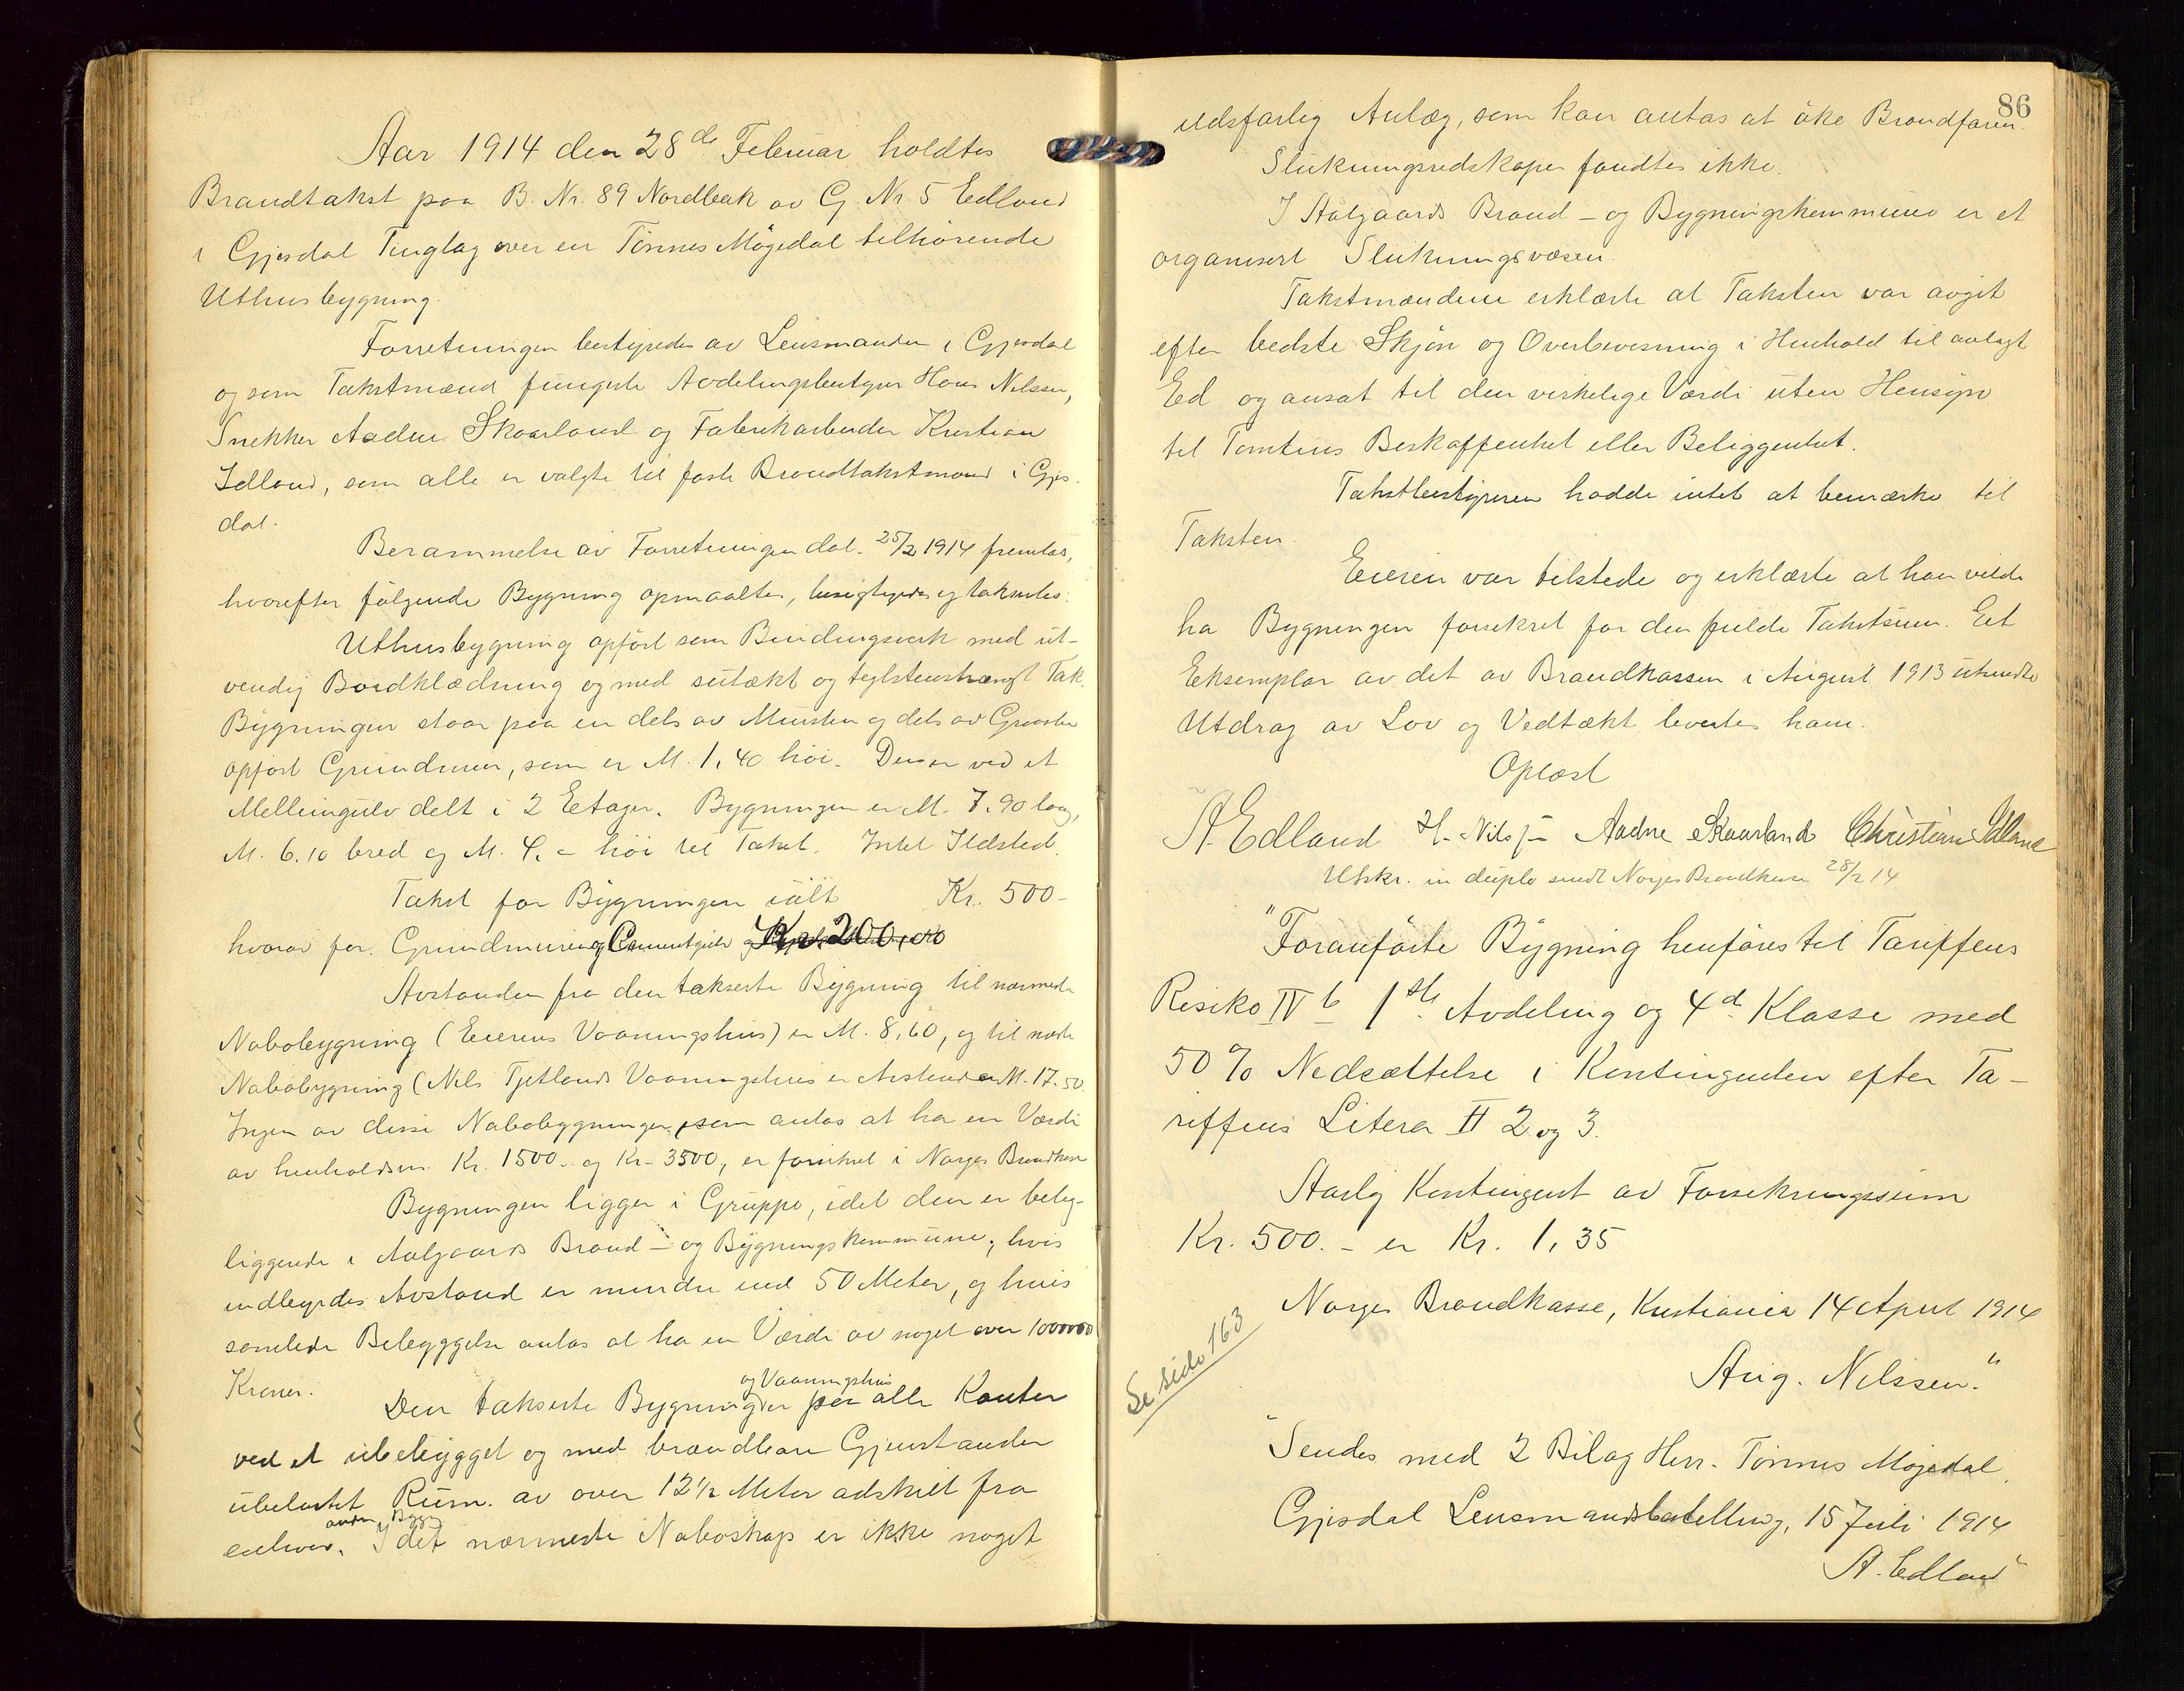 Aar 1914 den 28de Februar holdtes
Brandtakst paa B. Nr. 89 Nordbæk av G. Nr 5 Edland
i Gjesdal Tinglag over en Tønnes Møgedal tilhørende
Uthusbygning.
Forretningen bestyredes av Lensmanden i Gjesdal
og som Takstmænd fungerte Avdelingsbestyrer Hans Nilssen,
Snekker Aadne Skaarland og Fabrikarbeider Kristian
Idland, som alle er valgte til faste Brandtakstmænd i Gjes-
dal.
Berammelse av Forretningen dat. 25/2 1914 fremlas,
hvorefter følgende Bygning opmaaltes, besigtigedes og taksertes:
Uthusbygning opført som Bindingsverk med ut-
vendig Bordklædning og med sutækt og teglstenshængt Tak.
Bygningen staar paa en dels av Mursten og dels av Graasten
opført Grundmur, som er M. 1,40 høi. Den er ved et
Mellemgulv delt i 2 Etager. Bygningen er M. 7.90 lang,
M. 6.10 bred og M. 4, - høi til Taket. Intet Ildsted.
Takst for Bygningen ialt Kr. 500-
hvorav for Grundmuring og Cementgulv Kr. 200,00
Avstanden fra den takserte Bygning til nærmeste
Nabobygning (Eierens Vaaningshus) er M. 8,60, og til næste
Nabobygning (Nils Tjetlands Vaaningshus er Avstanden M. 17.50.
Ingen av disse Nabobygninger, som antas at ha en Værdi
av henholdsvis Kr. 1500. og Kr. 3500, er forsikret i Norges Brandkasse
Bygningen ligger i Gruppe, idet den er belig-
liggende i Aalgaards Brand- og Bygningskommune, hvis
indbyrdes Avstand er mindre end 50 Meter, og hvis
samlede Bebyggelse antas at ha en Værdi av noget over 1000000
Kroner.
og Vaaningshus
Den takserte Bygning er paa alle Kanter
ved et ubebygget og med brændbare Gjenstander
ubelastet Rum av over 12½ Meter adskilt fra
anden Bygn.
enhver. I det nærmeste Naboskap er ikke noget
86
ildsfarlig Anlæg, som kan antas at øke Brandfaren.
Slukningsredskaper fandtes ikke.
I Aalgaards Brand- og Bygningskommune er et
organisert Slukningsvæsen.
Takstmændene erklærte at Taksten var avgit
efter bedste Skjøn og Overbevisning i Henhold til avlagt
Ed og ansat til den virkelige Værdi uten Hensyn
til Tomtens Beskaffenhet eller Beliggenhet.
Takstbestyreren hadde intet at bemærke til
Taksten.
Eieren var tilstede og erklærte at han vilde
ha Bygningen forsikret for den fulde Takstsum. Et
Eksemplar av det av Brandkassen i August 1913 utsendte
Utdrag av Lov og Vedtækt levertes ham.
Oplæst
A. Edland H. Nilssen Aadne Skaarland Christian Idland
Utskr. in duplo sendt Norges Brandkasse 28/2 14
"Foranførte Bygning henføres til Tariffens
Risiko IV b 1ste Avdeling og 4de Klasse med
50% Nedsættelse i Kontingenten efter Ta-
riffens Litera H 2 og 3.
Aarlig Kontingent av Forsikringssum
Kr. 500.- er Kr. 1,35
Norges Brandkasse, Kristiania 14 April 1914
Aug. Nilssen."
Se side 163
"Sendes med 2 Bilag Herr. Tønnes Møjedal.
Gjesdal Lensmandsbestilling, 15 Juli 1914
A. Edland"